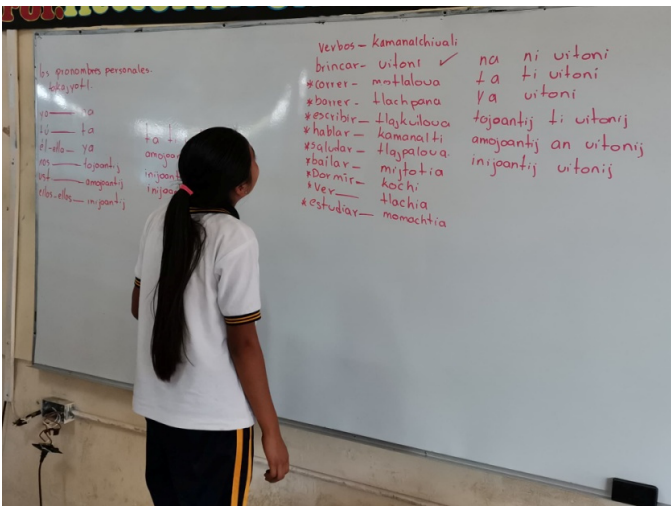 los pronombres personales.
tokajyotl.
yo — na
tú — ta
él-ella — ya
nos — tojoantij
ust — amojoantij
ellas-ellos — inijoantij
ta ti
inijoantij
verbos - kamanalchiuali
brincar - uitoni ✓
*correr - motlaloua
*barrer - tlachpana
*escribir - tlajkuiloua
*hablar - kamanalti
*saludar - tlajpaloua
*bailar - mijtotia
*Dormir - kochi
*Ver — tlachia
*estudiar — momachtia
na ni uitoni
ta ti uitoni
ya uitoni
tojoantij ti uitonij
amojoantij an uitonij
inijoantij uitonij